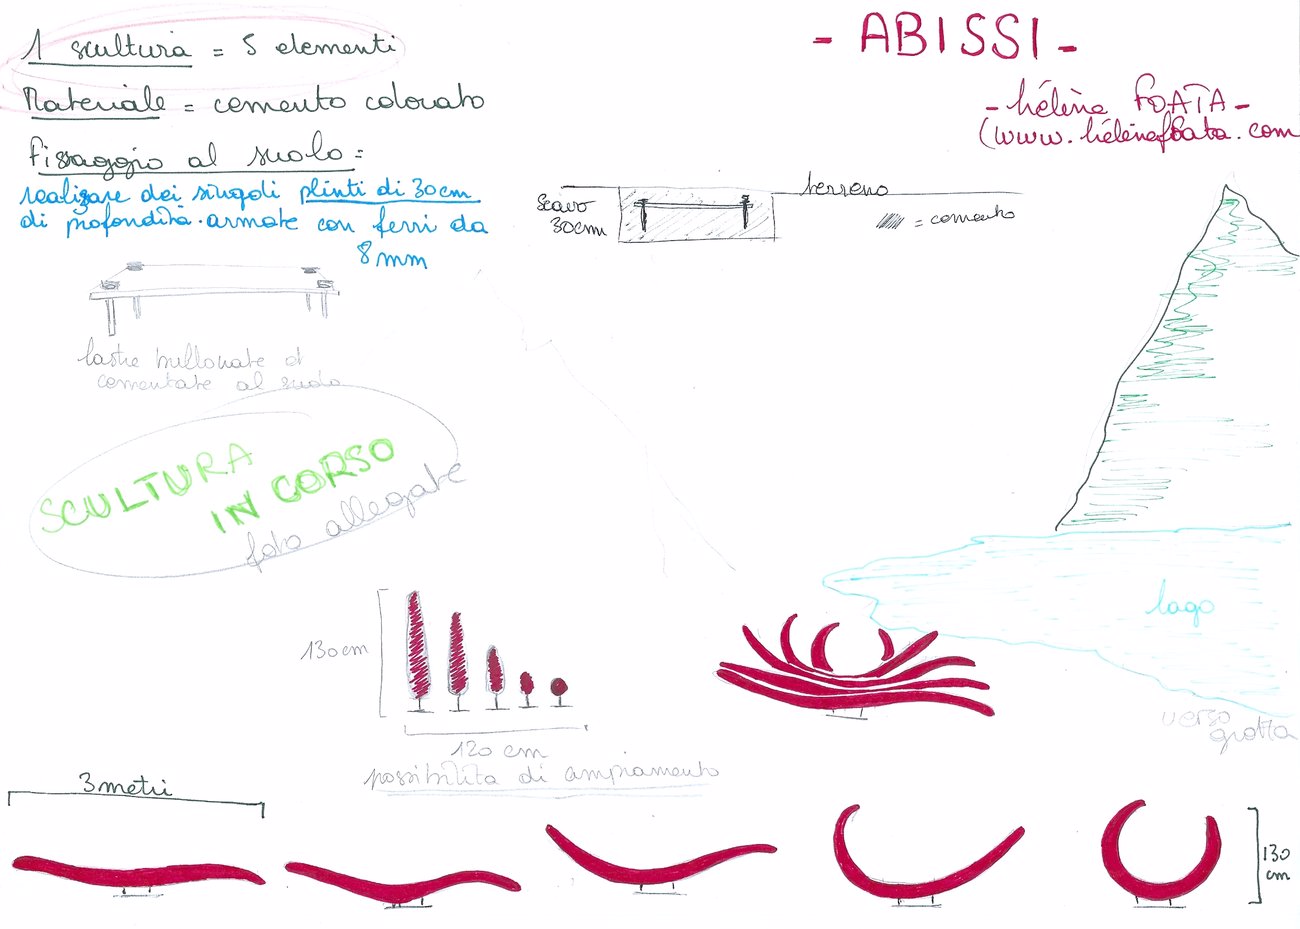 1 scultura = 5 elementi
Materiale = cemento colorato
fissaggio al suolo =
realizzare dei singoli plinti di 30cm
di profondità. armate con ferri da
8 mm
lastre bullonate o
cementate al suolo
SCULTURA
IN CORSO
foto allegate
- ABISSI -
- hélène FOATA -
(www.hélènefoata.com
Scavo
30cm
terreno
= cemento
lago
verso
grotta
130cm
120 cm
possibilita di ampiamento
3 metri
130
cm